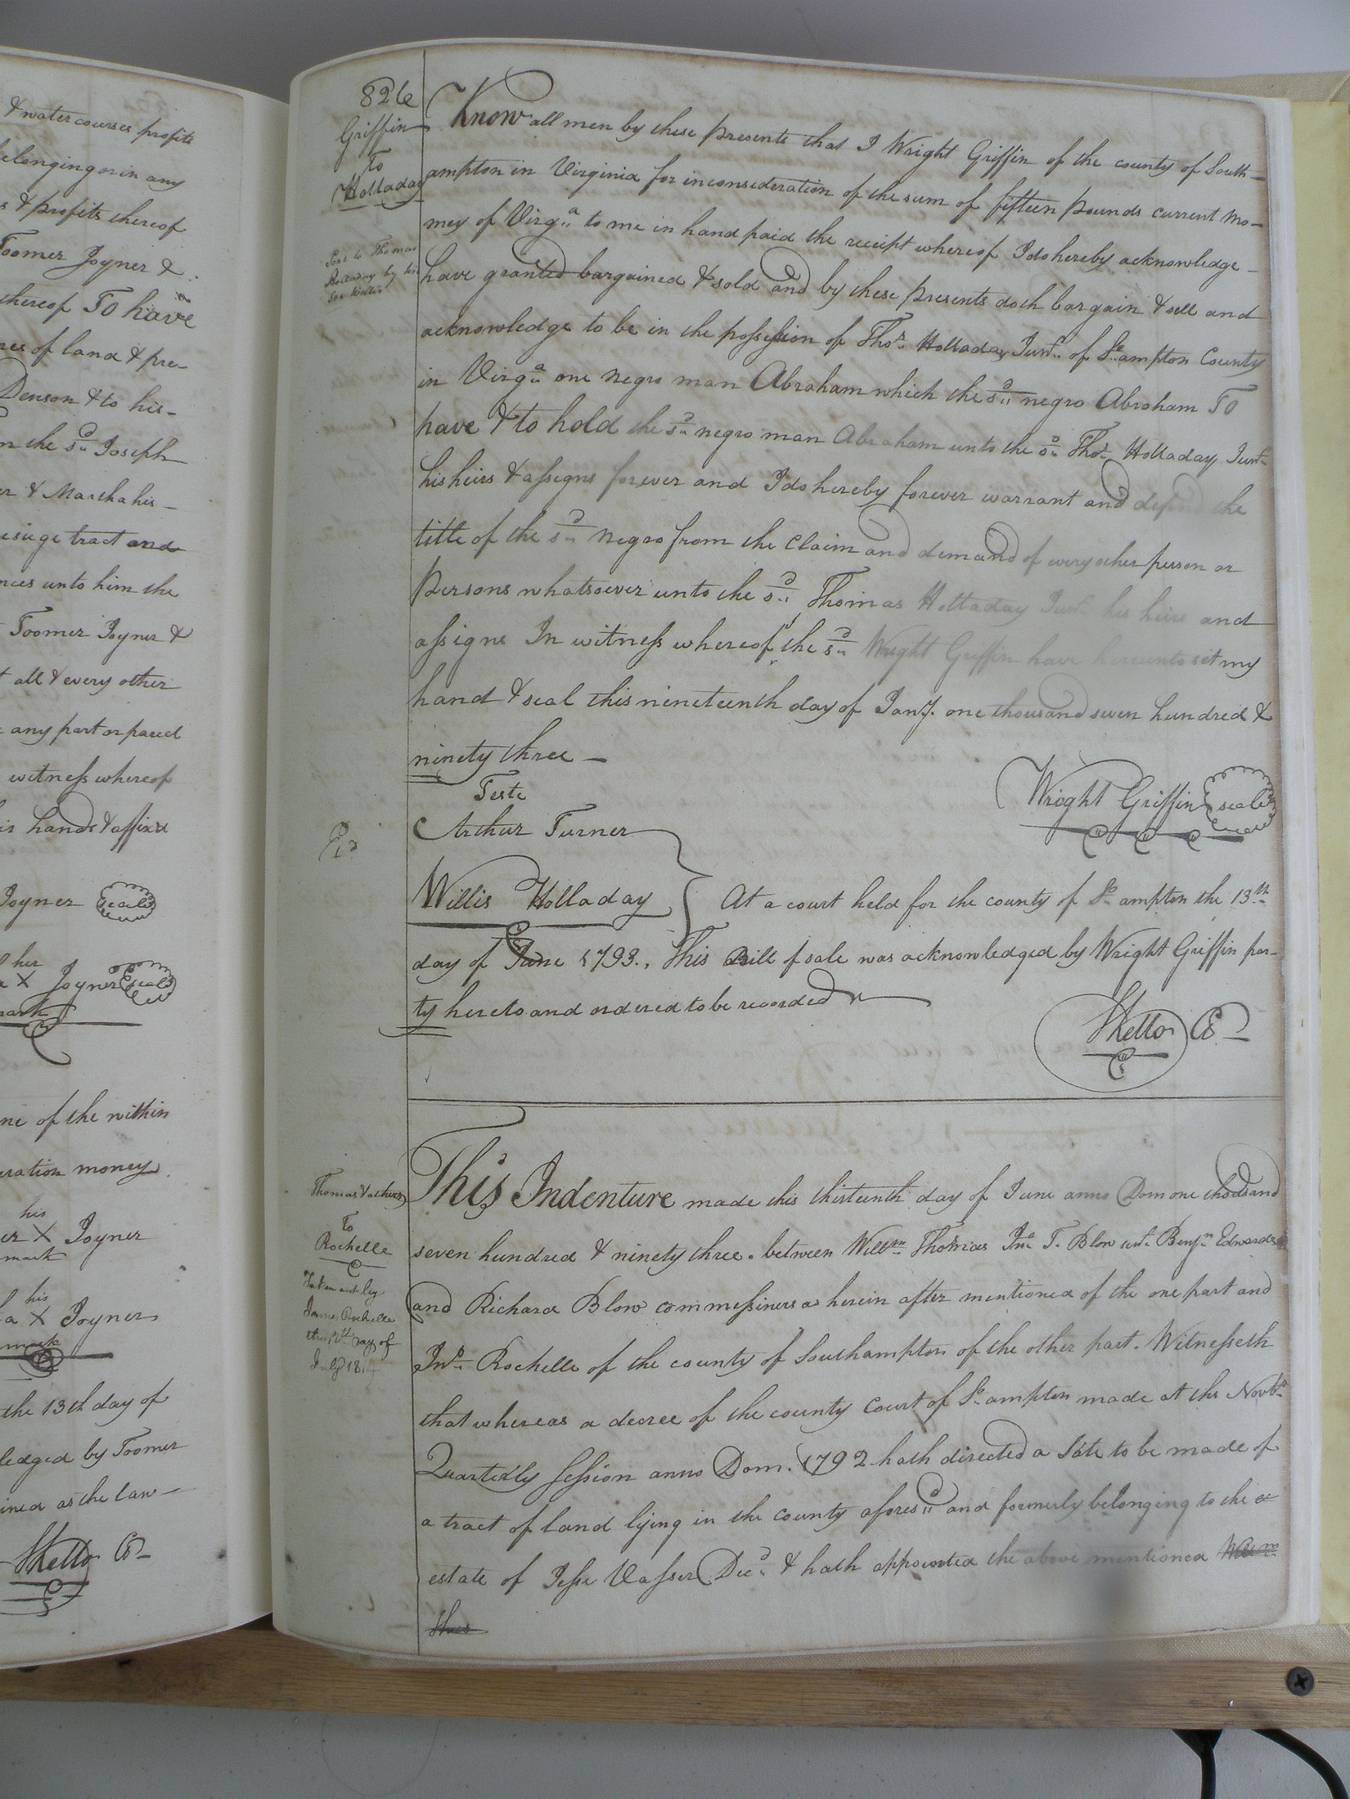 & water courses profits
belonging or in any
& profits thereof
Toomer Joyner &
thereof To have
of land & pre-
Denson & to his-
the sd. Joseph
& Marthahis-
tract and
unto him the
Toomer Joyner &
all & every other
any part or parcel
witness whereof
hands & affixed
Joyner seal
her
X Joyner seal
mark
of the within
money
his
X Joyner
mark
his
X Joyner
mark
the 13th day of
by Toomer
as the law-
SKello CC-
826
Griffin
To
Holladay
Know all men by these presents that I Wright Griffin of the county of South-
ampton in Virginia for inconsideration of the sum of fifteen pounds current mo-
ney of Virga. to me in hand paid the receipt whereof I do hereby acknowledge-
have granted bargained & sold and by these presents doth bargain & sell and
acknowledge to be in the possession of Thos. Holladay Junr. of So.ampton County
in Virga. one negro man Abraham which the sd. negro Abraham To
have & to hold the sd. negro man Abraham unto the sd. Thos. Holladay Junr.
his heirs & assigns forever and I do hereby forever warrant and defend the
title of the sd. negro from the claim and demand of every other person or
persons whatsoever unto the sd. Thomas Holladay Junr. his heirs and
assigns In witness whereof the sd. Wright Griffin have hereunto set my
hand & seal this nineteenth day of Jany. one thousand seven hundred &
ninety three -
Teste
Arthur Turner
Willis Holladay
Wright Griffin seal
At a court held for the county of So.ampton the 13th.
day of June 1793. This Bill of sale was acknowledged by Wright Griffin par-
ty hereto and ordered to be recorded
SKello CC-
Thomas & others
To
Rochelle
James Rochelle
day of
This Indenture made this thirteenth day of June anno Dom one thousand
seven hundred & ninety three. between Willm. Thomas Jno. T. Blow Benjn. Edwards
and Richard Blow commessiners as herein after mentioned of the one part and
Jno. Rochelle of the county of Southampton of the other part. Witnesseth
that whereas a decree of the county Court of So.ampton made at the Novbr.
Quarterly Session anno Dom. 1792 hath directed a Sale to be made of
a tract of land lying in the county aforesd. and formerly belonging to the
estate of Jesse Vasser Decd. & hath appointed the above mentioned